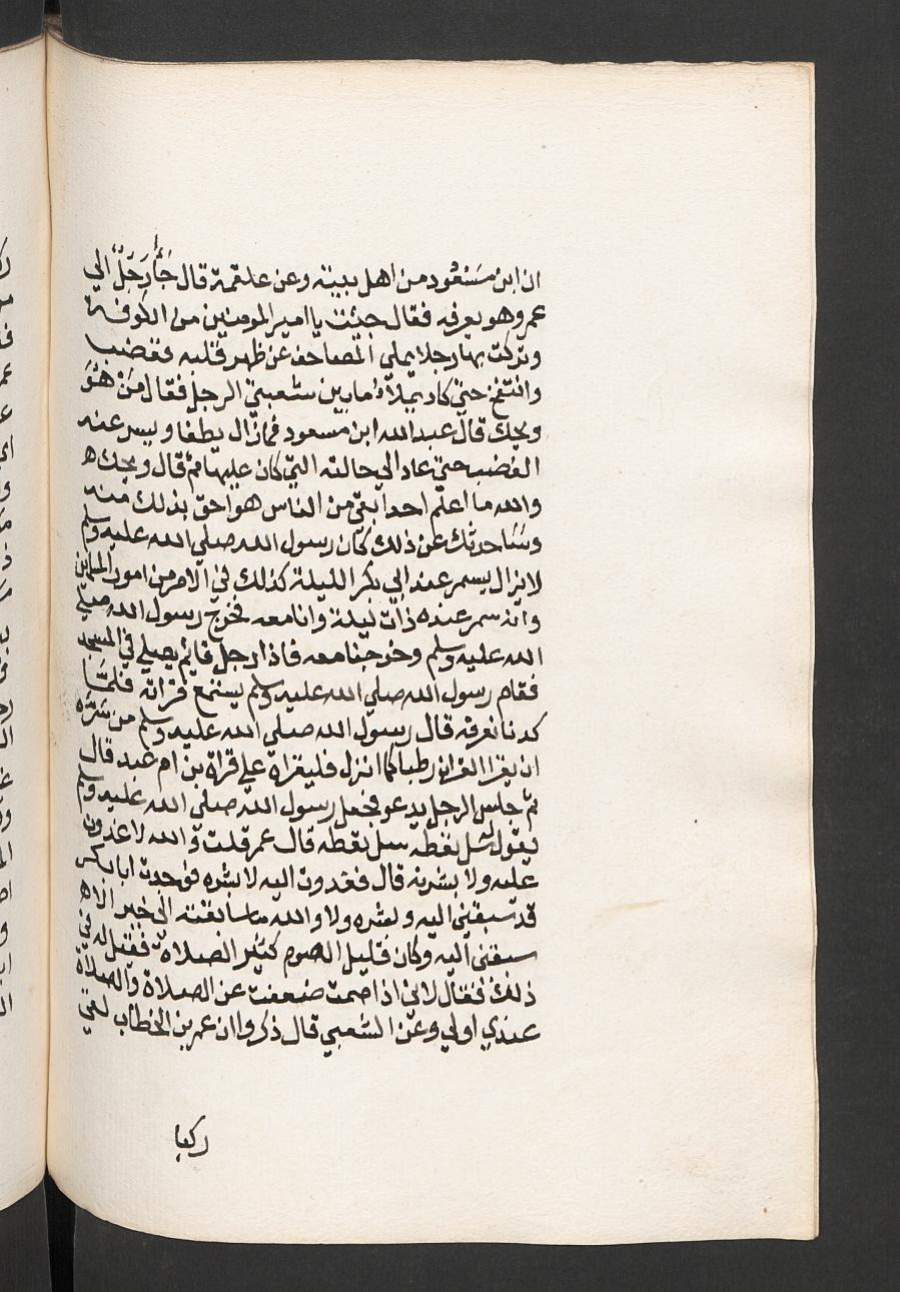 ان ابن مَسْعُود من اهل بيته وعن علقمة قال جَاءَ رَجُلٌ الي
عمر وهو بعرفه فقال جيئت يا امير المومنين من الكوفه
وتركت بها رجلا يملي المصاحف عن ظهر قلبه فغضب
وانتفخ حتي كاد يملاء ما بين شعبتي الرجل فقال مَنْ هُوَ
ويحك قال عبد الله ابن مسعود فمازال يطفا ويسر عنه
الغضب حتي عاد الي حالته التي كان عليها ثم قال ويحك ه
والله ما اعلم احدا بقي من الناس هو احق بذلك منه
وسَأحدثك عن ذلك كان رسول الله صلي الله عليه وسلم
لايزال يسمر عند ابي بكر الليلة كذلك في الامر من امور المسلمين
وانه سمر عنده ذات ليلة وانا معه فخرج رسول الله صلي
الله عليه وسلم وخرجنا معه فاذا رجل قايم يصلي في المسجد
فقام رسول الله صلي الله عليه وسلم يستمع قراته فلمَّا
كدنا نعرفه قال رسول الله صلي الله عليه وسلم من سَرَّه
ان يقرا القران رطبا كما انزل فليقراه علي قراة بن ام عبد قال
ثم جلس الرجل يدعو فجعل رسول الله صلي الله عليه وسلم
يقول سَل تعطه سل تعطه قال عمر قلت والله لاغدون
عليه ولا بشرنه قال فغدوت اليه لا بشره فوجدت ابا بكر
قد سبقني اليه وبشره ولا والله ما سابقته الي خير الا ه
سبقني اليه وكان قليل الصوم كثير الصلاة فقيل له في
ذلك فقال لاني اذا صمت ضعفت عن الصلاة والصلاة
عندي اولي وعن الشعبي قال ذكروا ان عمر بن الخطاب لقي
ركبا